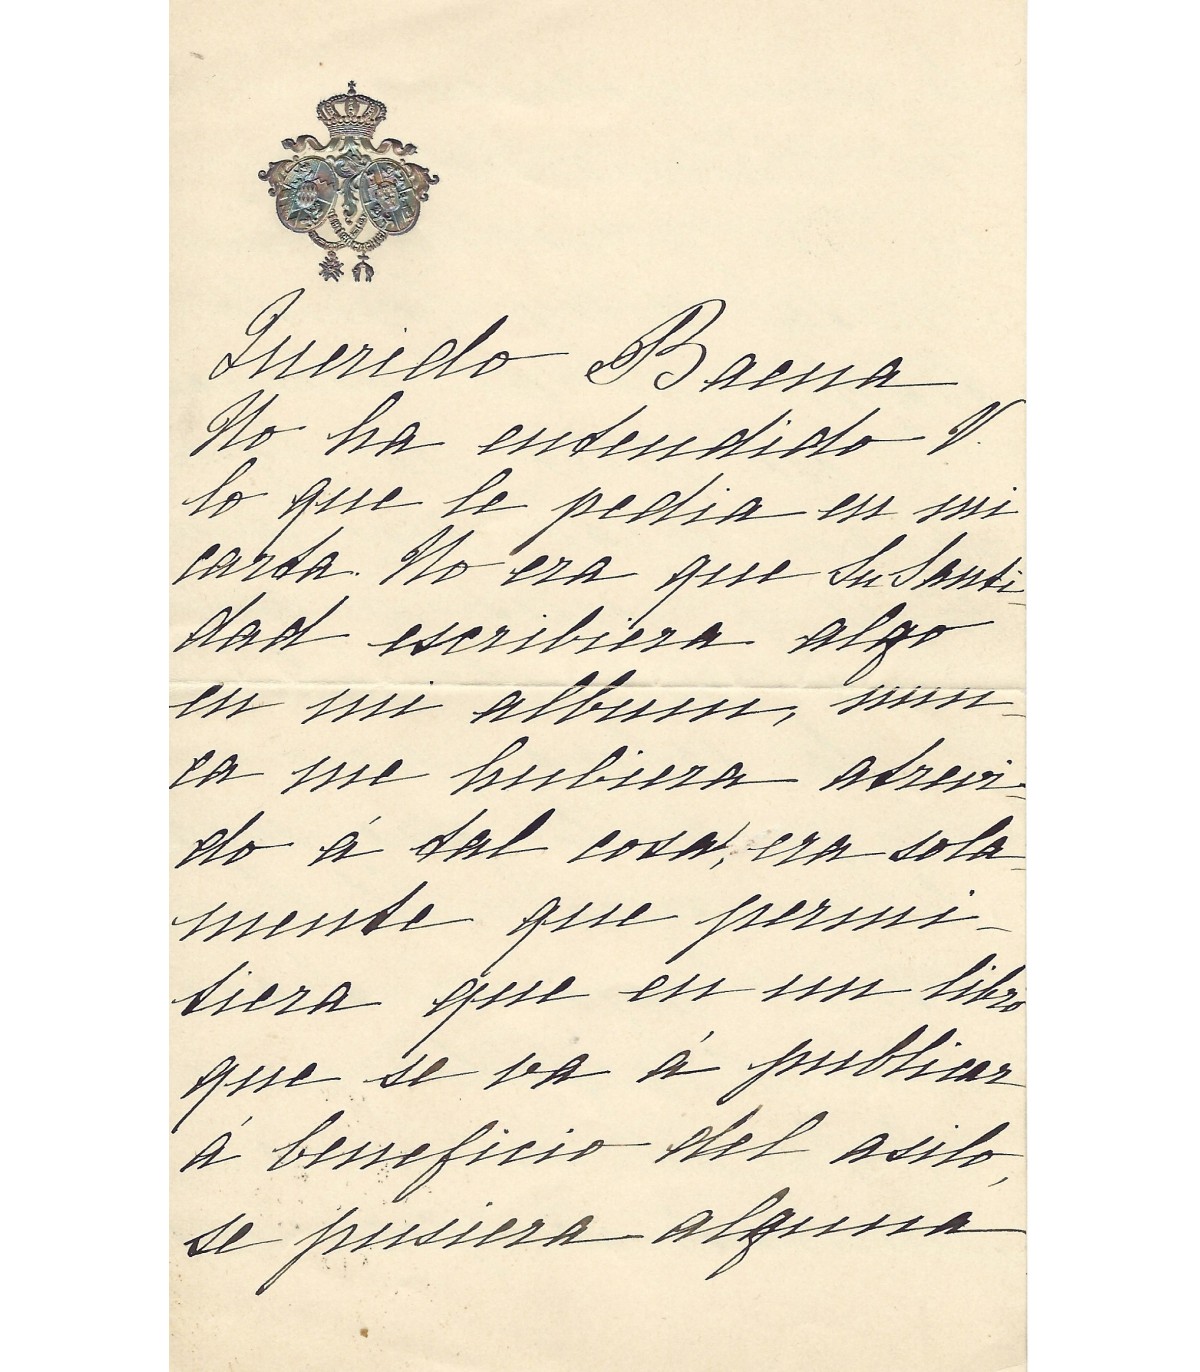 Querido Baena
No ha entendido V.
lo que le pedia en mi
carta. No era que Su Santi-
dad escribiera algo
en mi album, nun-
ca me hubiera atrevi-
do á tal cosa, era sola-
mente que permi-
tiera que en un libro
que se va á publicar
á beneficio del asilo,
se pusiera alguna